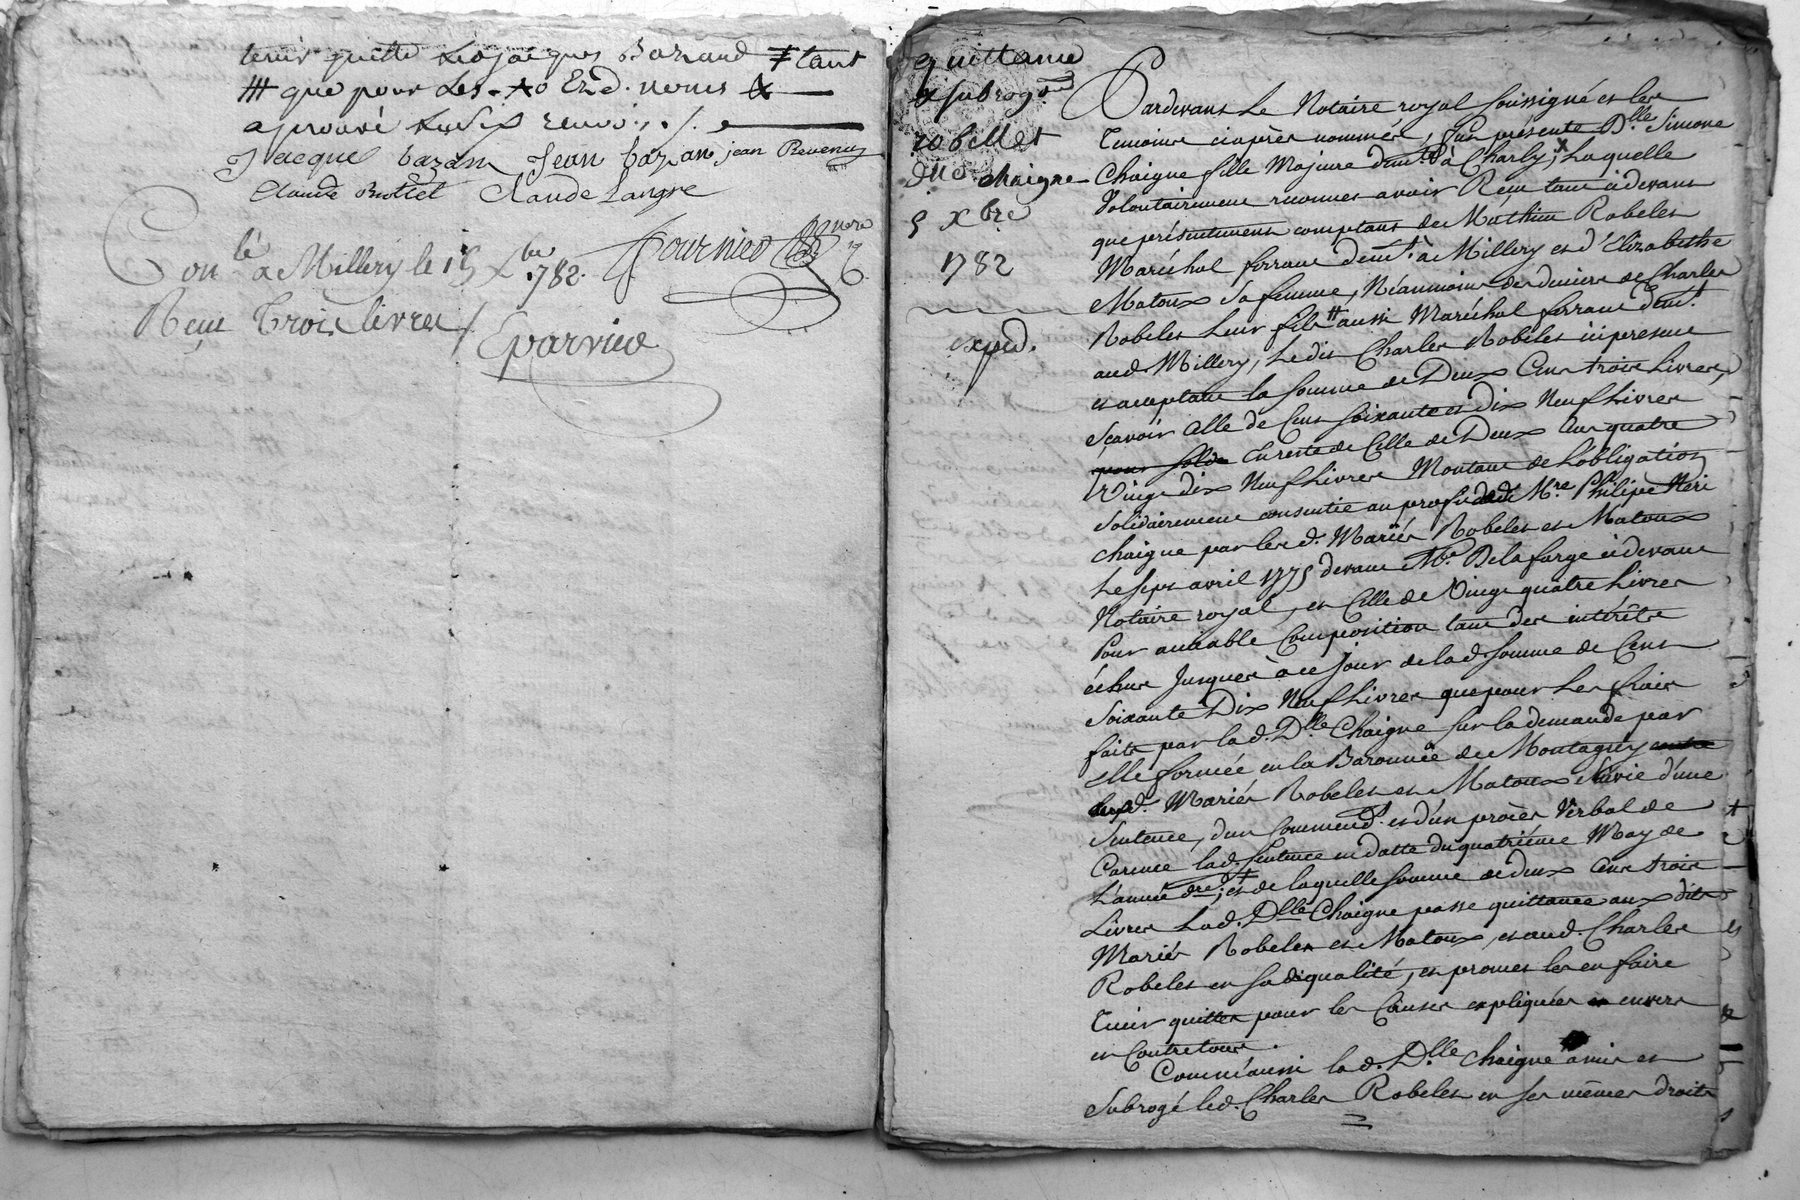 tenir quitte led. jacques Bazand ⌗ tant
⌗ que pour les. End. noms
aprouvé les six renvois ./.
Jacque bazam Jean bazan jean Revenu
Claude Claude Langre
Con.lé a Millery le 15 Xbre 1782. fournier nore
Reçu Trois livres /.
Eparvier
quittance
& subrog.on
robellet
Dlle chaigne
5 Xbre
1782
exped.
Pardevant Le Notaire royal soussigné et les
Temoins ciaprès nommés, fut présente D.lle Simone
Chaigne fille Majeure dem.t à Charly, Laquelle
Volontairement reconnes avoir Reçu tant cidevant
que présentement comptant de Mathieu Robelet
Maréchal ferrant dem.t à Millery et d'Elizabethe
Matoux Sa femme, Néanmoins des deniers de Charles
Robelet Leur fils aussi Maréchal ferrant dem.t
aud. Millery, Ledit Charles Robelet ici present
et acceptant la somme de Deux Cent trois Livres,
Sçavoir Celle de Cent Soixante et dix Neuf Livres
pour solde en reste de Celle de Deux Cent quatre
Vingt dix Neuf Livres Montant de L'obligation
Solidairement consentie au profit de M.re Philipe Neri
Chaigne par les d. Mariés Robelet et Matoux
Le sept avril 1775 devant M.e Delaforge cidevant
Notaire royal, et Celle de Vingt quatre Livres
Pour amiable Composition tant des intérêts
échus Jusques à ce jour de lad. somme de Cent
Soixante Dix Neuf Livres que pour Les frais
faits par lad. D.lle Chaigne sur la demande par
elle formée en la Baronnie de Montagny contre
lesd. Mariés Robelet et Matoux Suivie d'une
Sentence, d'un Commend.t et d'un procès Verbal de
Carence lad. Sentence en datte du quatriéme May de
L'année dre; et de laquelle somme de deux Cent trois
Livres Lad. D.lle Chaigne passe quittance aux dits
Mariés Robelet et Matoux, et aud. Charles
Robelet en sadequalité, et promet les en faire
Tenir quittes pour les Causes expliquées envers
et Contre tous.
Comm'aussi lad. D.lle Chaigne a mis et
Subrogé led. Charles Robelet en ses mêmes droits